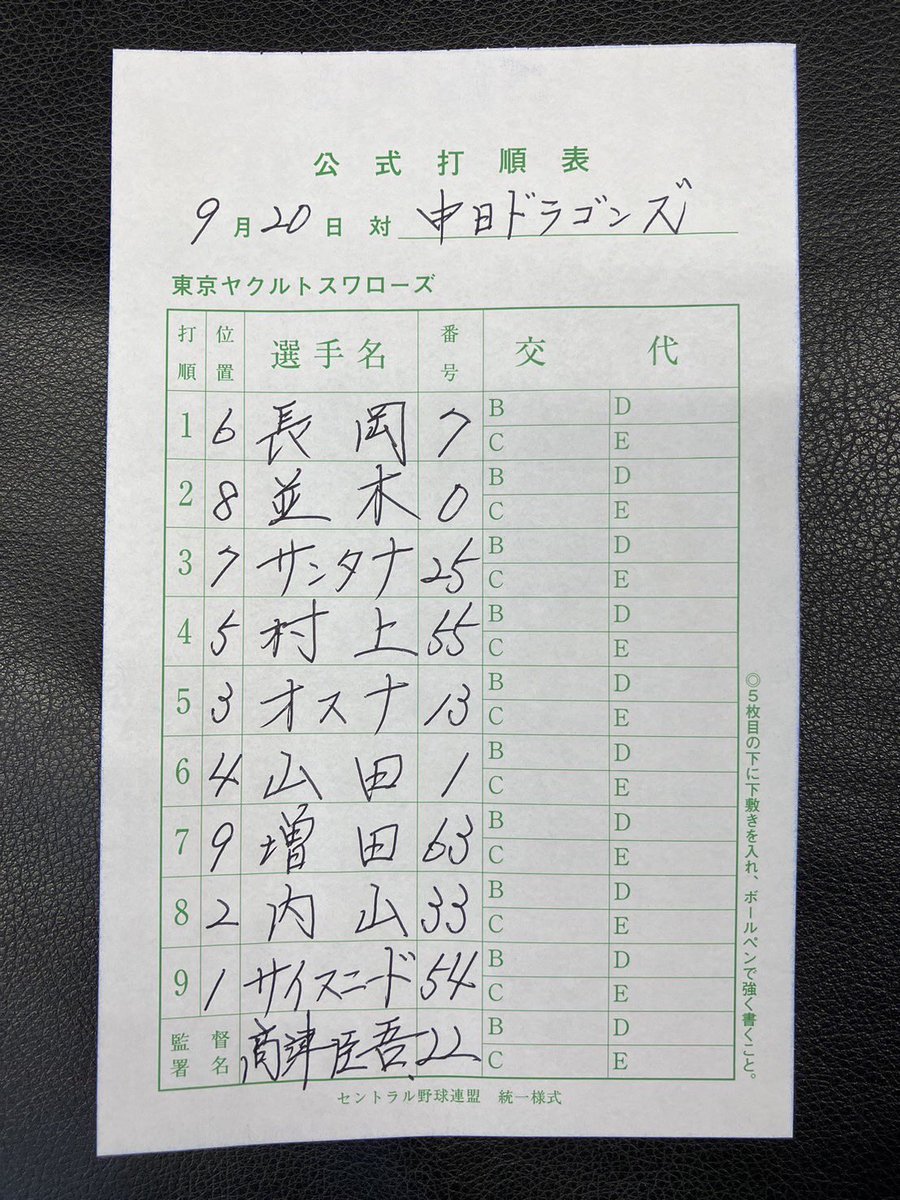 公式打順表
9月20日 対 中日ドラゴンズ
東京ヤクルトスワローズ
打順 位置 選手名 番号 交代
1 6 長岡 7 B D C E
2 8 並木 0 B D C E
3 7 サンタナ 25 B D C E
4 5 村上 55 B D C E
5 3 オスナ 13 B D C E
6 4 山田 1 B D C E
7 9 増田 63 B D C E
8 2 内山 33 B D C E
9 1 サイスニード 54 B D C E
監督署名 高津臣吾 22 B D C E
セントラル野球連盟 統一様式
◎5枚目の下に下敷きを入れ、ボールペンで強く書くこと。